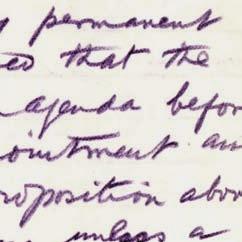 permanent
that the
agenda before
ointment an
roposition abov
unless a